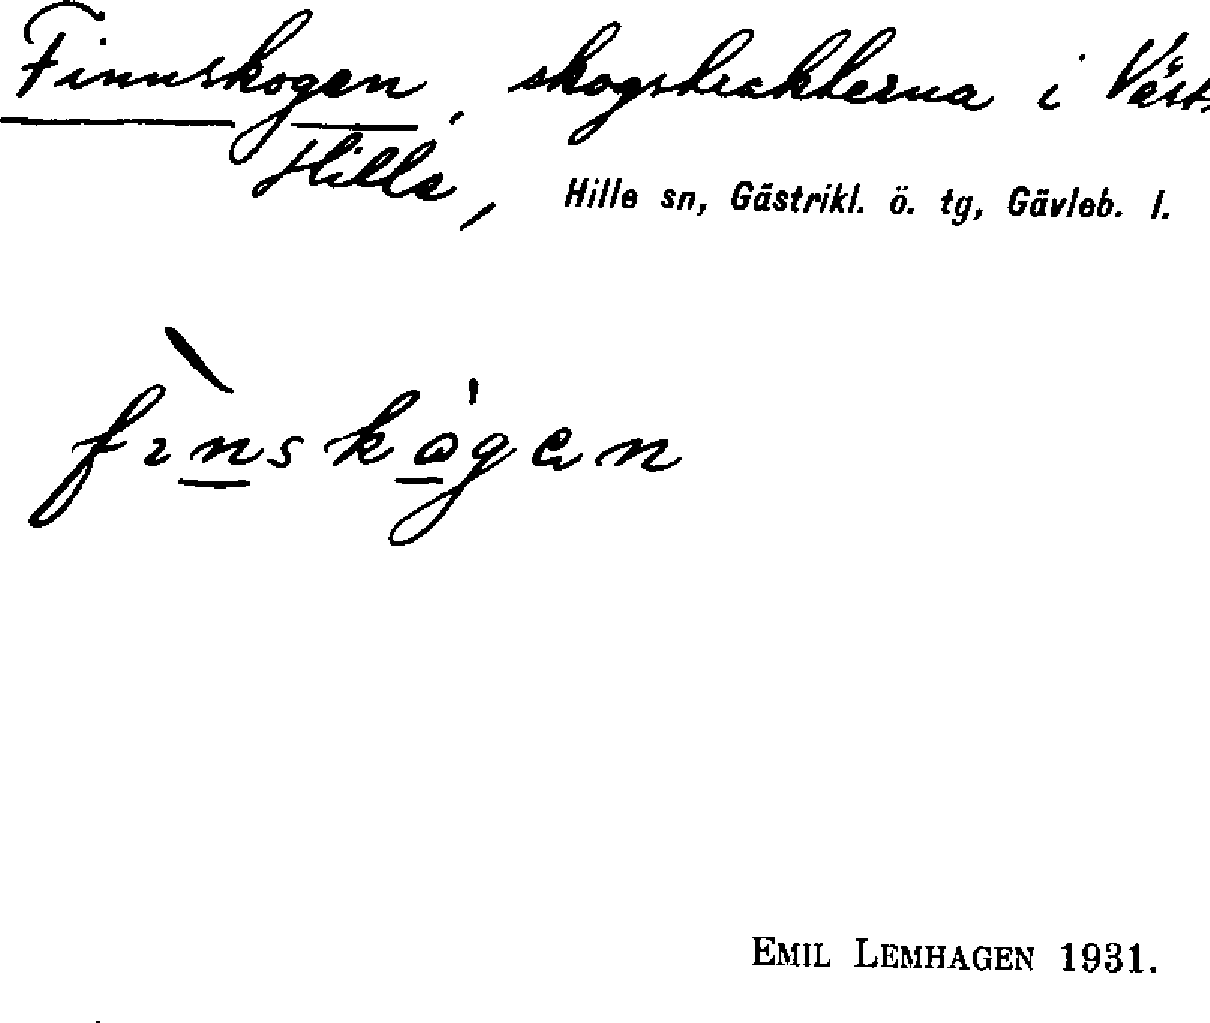 Finnskogen, skogstrakterna i Väst.
Hille, Hille sn, Gästrikl. ö. tg, Gävleb. l.
finskogen
EMIL LEMHAGEN 1931.